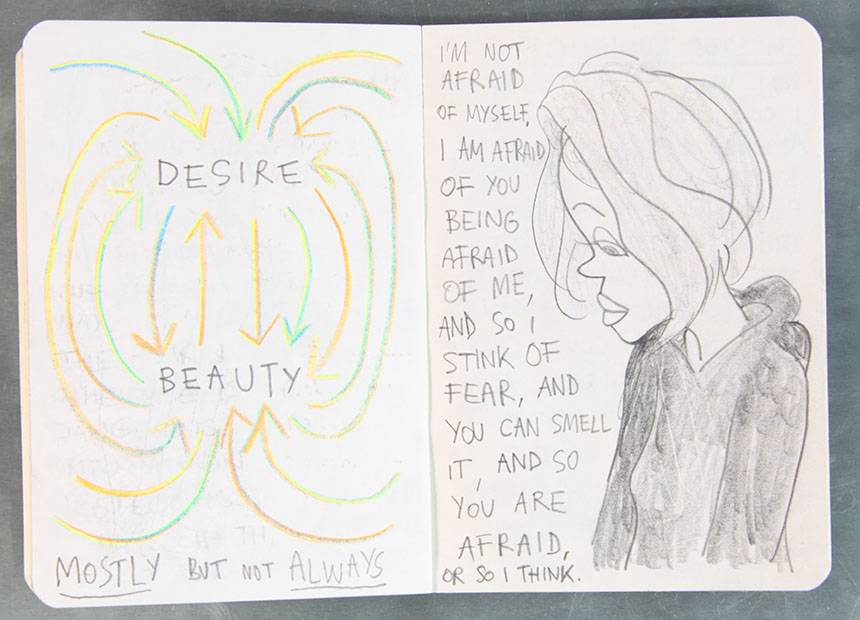 DESIRE
BEAUTY
MOSTLY BUT NOT ALWAYS
I'M NOT
AFRAID
OF MYSELF,
I AM AFRAID
OF YOU
BEING
AFRAID
OF ME,
AND SO I
STINK OF
FEAR, AND
YOU CAN SMELL
IT, AND SO
YOU ARE
AFRAID,
OR SO I THINK.